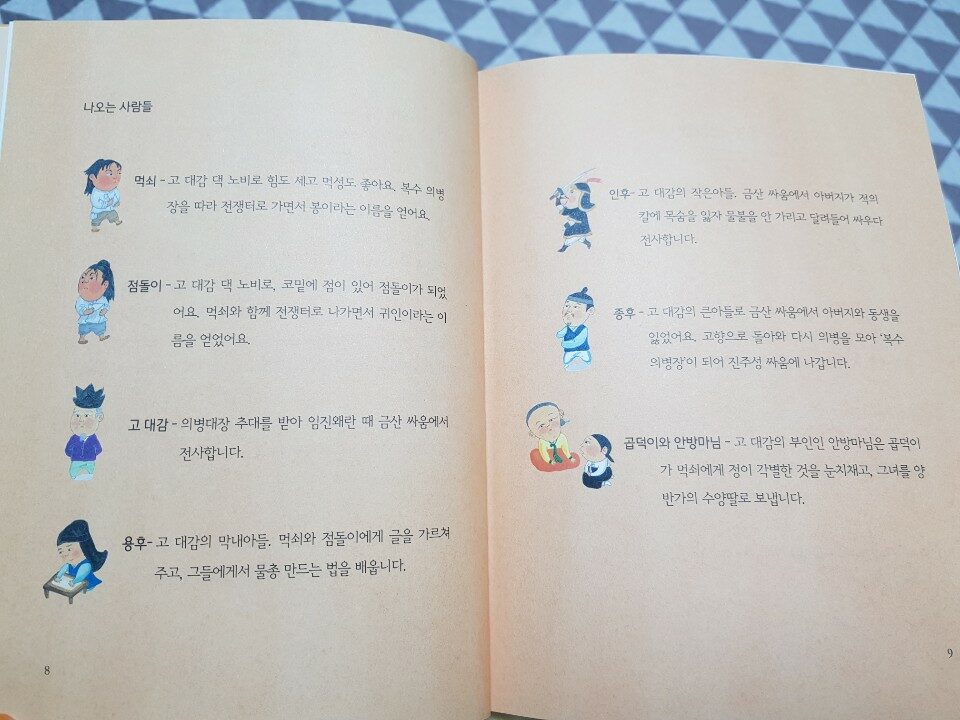 나오는 사람들
먹쇠 - 고 대감 댁 노비로 힘도 세고 먹성도 좋아요. 복수 의병
장을 따라 전쟁터로 가면서 봉이라는 이름을 얻어요.
점돌이 - 고 대감 댁 노비로, 코밑에 점이 있어 점돌이가 되었
어요. 먹쇠와 함께 전쟁터로 나가면서 귀인이라는 이
름을 얻었어요.
고 대감 - 의병대장 추대를 받아 임진왜란 때 금산 싸움에서
전사합니다.
용후 - 고 대감의 막내아들. 먹쇠와 점돌이에게 글을 가르쳐
주고, 그들에게서 물총 만드는 법을 배웁니다.
8
인후 - 고 대감의 작은아들. 금산 싸움에서 아버지가 적의
칼에 목숨을 잃자 물불을 안 가리고 달려들어 싸우다
전사합니다.
종후 - 고 대감의 큰아들로 금산 싸움에서 아버지와 동생을
잃었어요. 고향으로 돌아와 다시 의병을 모아 '복수
의병장'이 되어 진주성 싸움에 나갑니다.
곱덕이와 안방마님 - 고 대감의 부인인 안방마님은 곱덕이
가 먹쇠에게 정이 각별한 것을 눈치채고, 그녀를 양
반가의 수양딸로 보냅니다.
9